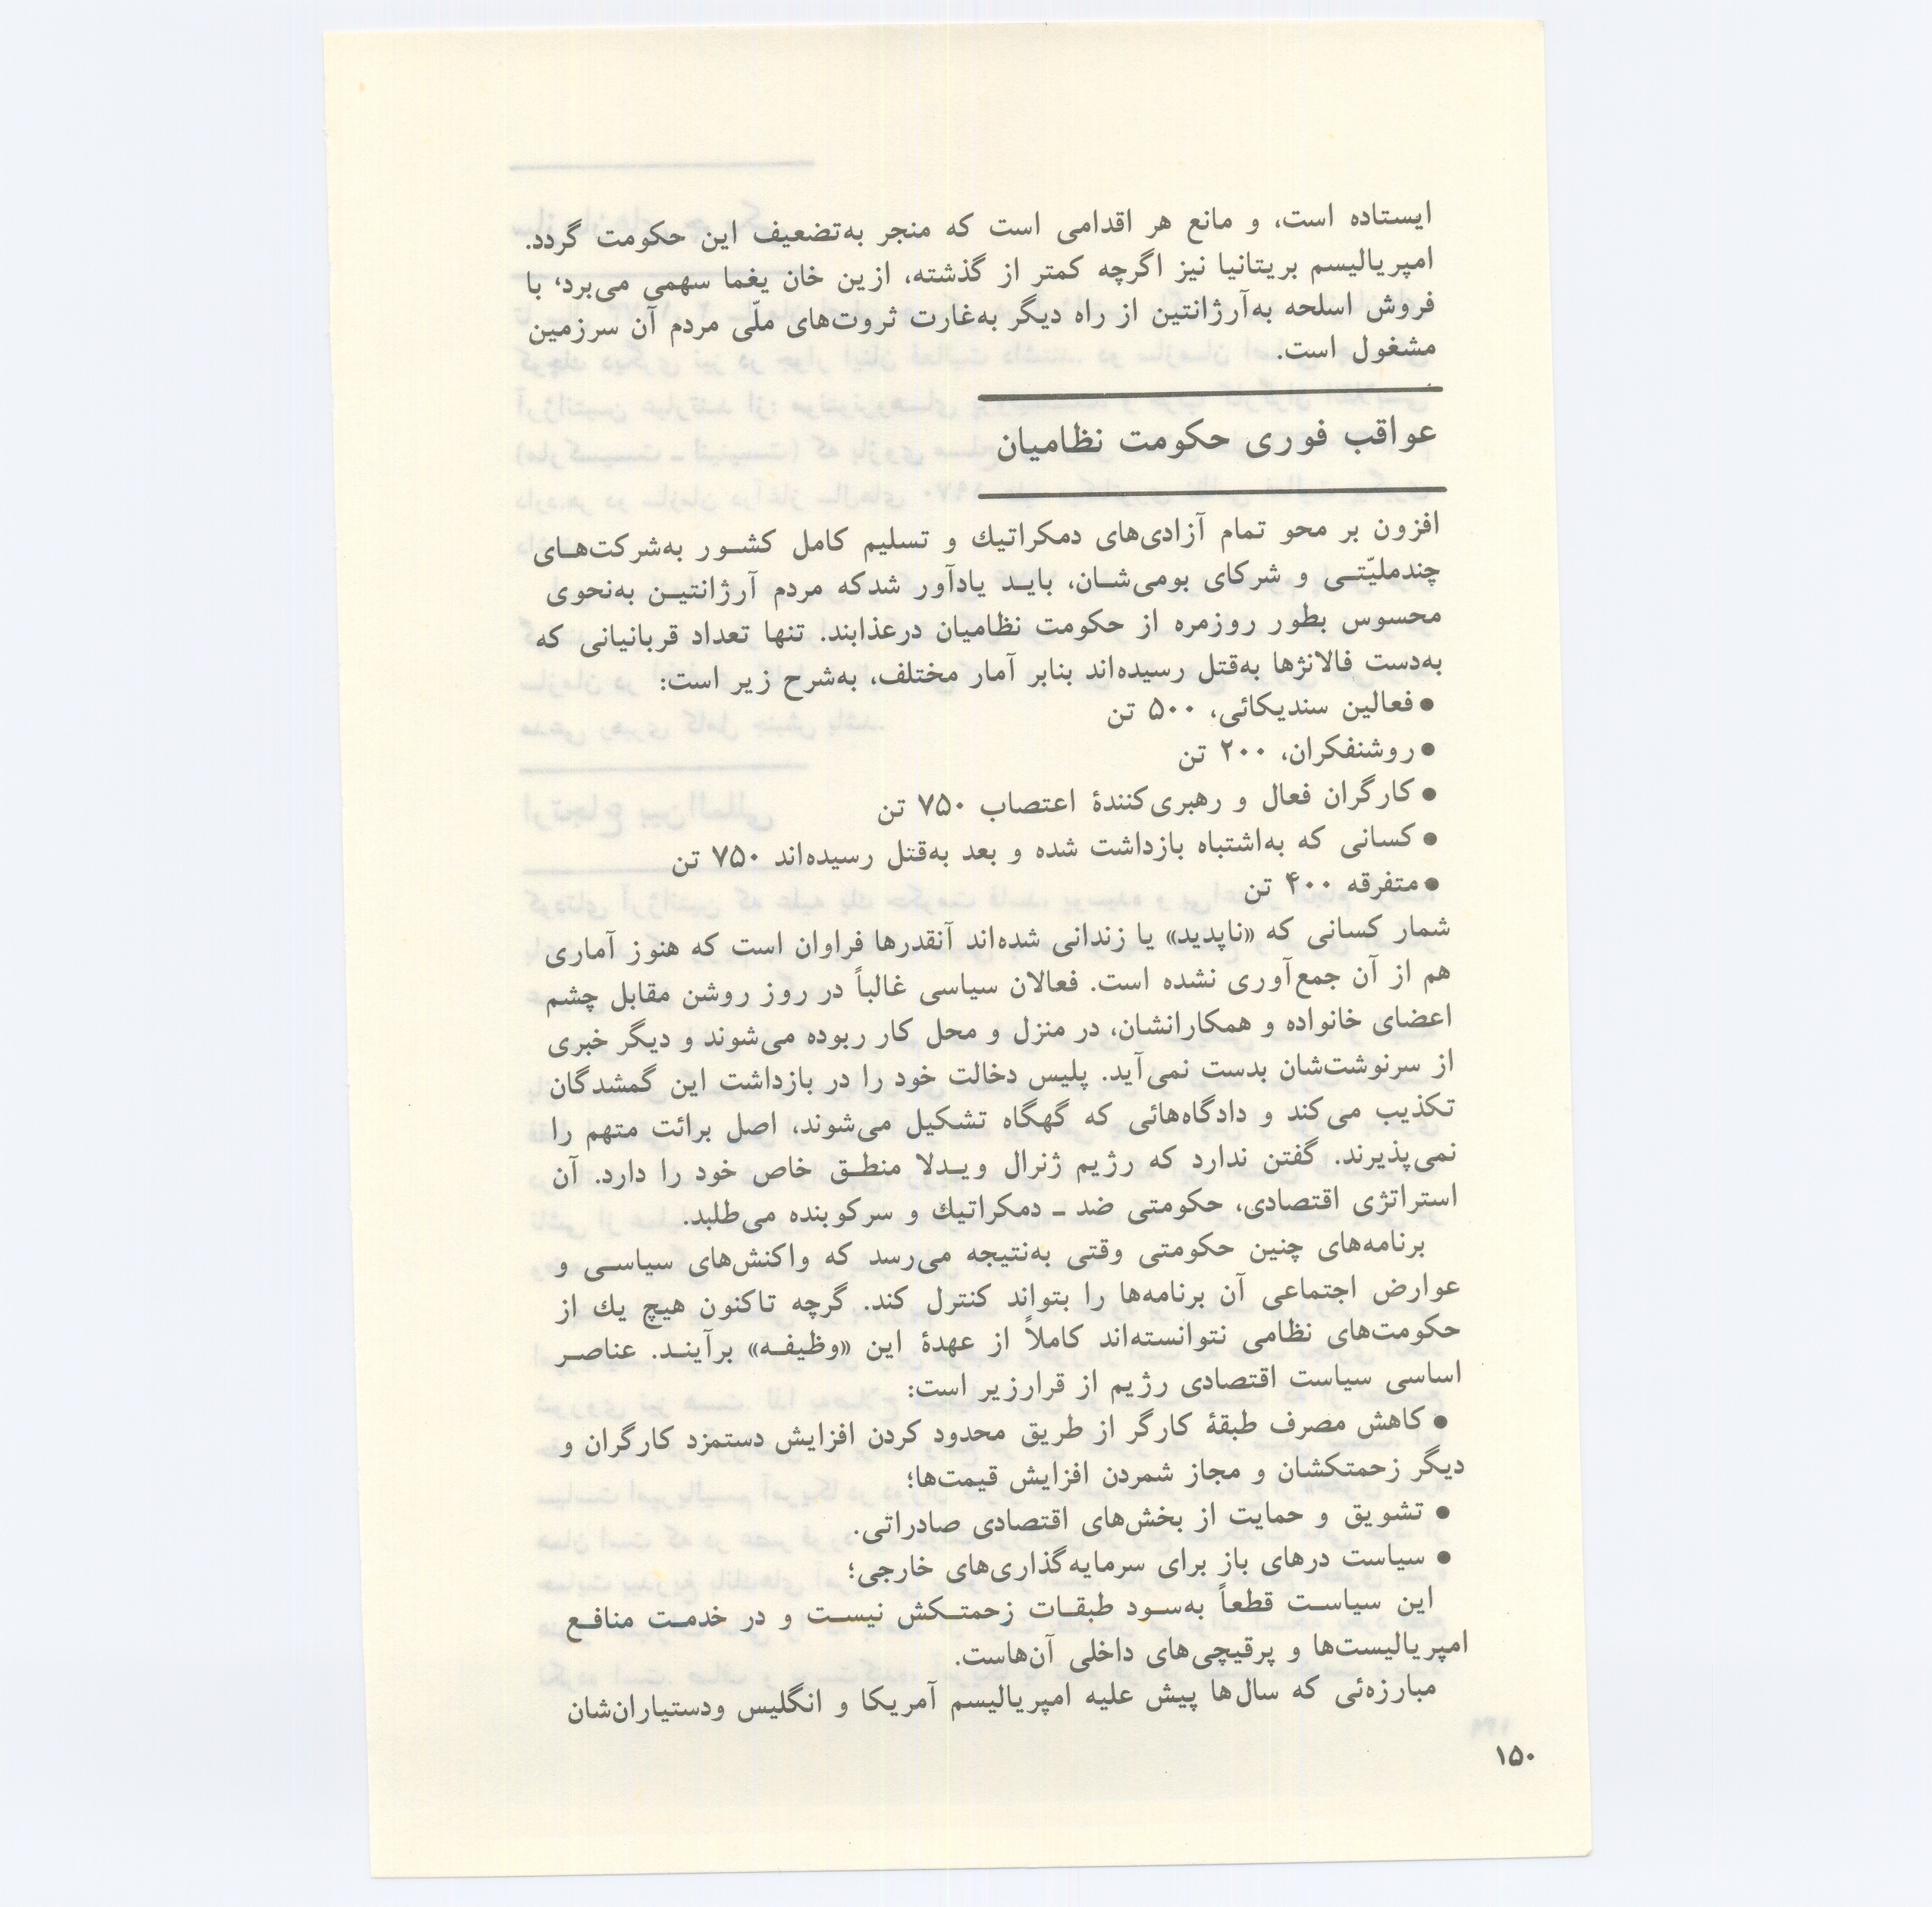 ایستاده است، و مانع هر اقدامی است که منجر به‌تضعیف این حکومت گردد.
امپریالیسم بریتانیا نیز اگرچه کمتر از گذشته، ازین خان یغما سهمی می‌برد، با
فروش اسلحه به‌آرژانتین از راه دیگر به‌غارت ثروت‌های ملّی مردم آن سرزمین
مشغول است.
عواقب فوری حکومت نظامیان
افزون بر محو تمام آزادی‌های دمکراتیك و تسلیم کامل کشور به‌شرکت‌های
چندملیّتی و شرکای بومی‌شان، باید یادآور شدکه مردم آرژانتین به‌نحوی
محسوس بطور روزمره از حکومت نظامیان درعذابند. تنها تعداد قربانیانی که
به‌دست فالانژها به‌قتل رسیده‌اند بنابر آمار مختلف، به‌شرح زیر است:
● فعالین سندیکائی، ۵۰۰ تن
● روشنفکران، ۲۰۰ تن
● کارگران فعال و رهبری‌کنندۀ اعتصاب ۷۵۰ تن
● کسانی که به‌اشتباه بازداشت شده و بعد به‌قتل رسیده‌اند ۷۵۰ تن
● متفرقه ۴۰۰ تن
شمار کسانی که «ناپدید» یا زندانی شده‌اند آنقدرها فراوان است که هنوز آماری
هم از آن جمع‌آوری نشده است. فعالان سیاسی غالباً در روز روشن مقابل چشم
اعضای خانواده و همکارانشان، در منزل و محل کار ربوده می‌شوند و دیگر خبری
از سرنوشت‌شان بدست نمی‌آید. پلیس دخالت خود را در بازداشت این گمشدگان
تکذیب می‌کند و دادگاه‌هائی که گهگاه تشکیل می‌شوند، اصل برائت متهم را
نمی‌پذیرند. گفتن ندارد که رژیم ژنرال ویدلا منطق خاص خود را دارد. آن
استراتژی اقتصادی، حکومتی ضد ـ دمکراتیك و سرکوبنده می‌طلبد.
برنامه‌های چنین حکومتی وقتی به‌نتیجه می‌رسد که واکنش‌های سیاسی و
عوارض اجتماعی آن برنامه‌ها را بتواند کنترل کند. گرچه تاکنون هیچ یك از
حکومت‌های نظامی نتوانسته‌اند کاملاً از عهدۀ این «وظیفه» برآیند. عناصر
اساسی سیاست اقتصادی رژیم از قرارزیر است:
● کاهش مصرف طبقۀ کارگر از طریق محدود کردن افزایش دستمزد کارگران و
دیگر زحمتکشان و مجاز شمردن افزایش قیمت‌ها؛
● تشویق و حمایت از بخش‌های اقتصادی صادراتی.
● سیاست درهای باز برای سرمایه‌گذاری‌های خارجی؛
این سیاست قطعاً به‌سود طبقات زحمتکش نیست و در خدمت منافع
امپریالیست‌ها و پرقیچی‌های داخلی آن‌هاست.
مبارزه‌ئی که سال‌ها پیش علیه امپریالیسم آمریکا و انگلیس ودستیاران‌شان
۱۵۰